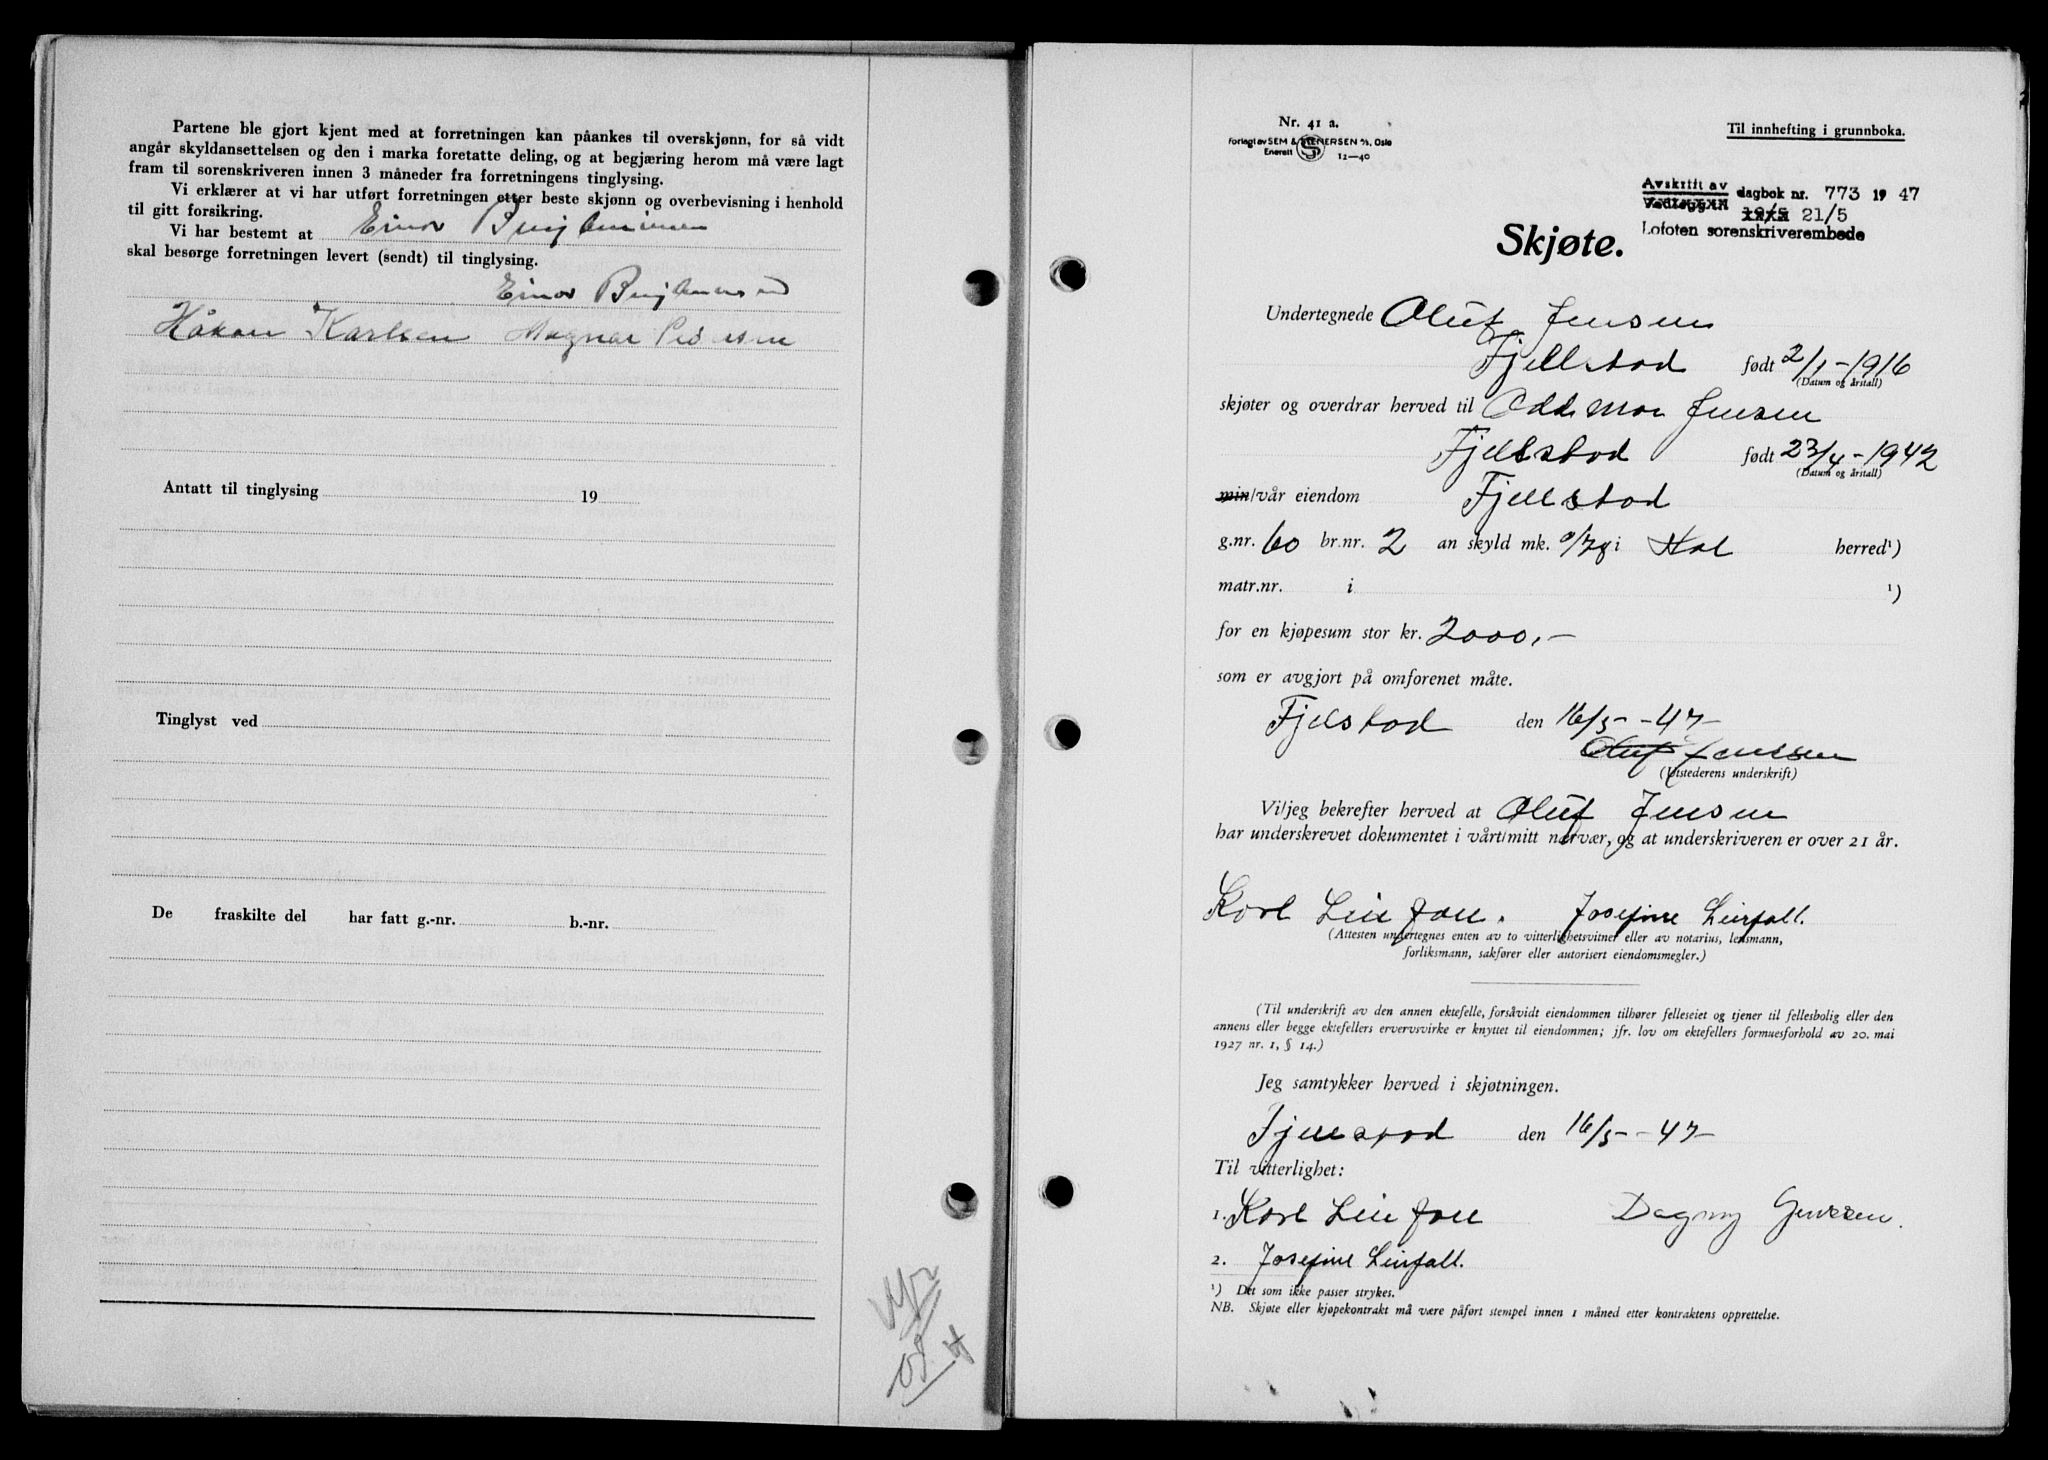 Partene ble gjort kjent med at forretningen kan påankes til overskjønn, for så vidt
angår skyldansettelsen og den i marka foretatte deling, og at begjæring herom må være lagt
fram til sorenskriveren innen 3 måneder fra forretningens tinglysing.
Vi erklærer at vi har utført forretningen etter beste skjønn og overbevisning i henhold
til gitt forsikring.
Vi har bestemt at Einar
skal besørge forretningen levert (sendt) til tinglysing.
Einar
Håkon Karlsen Magnar Pedersen
Antatt til tinglysing 19
Tinglyst ved
De fraskilte del har fatt g.-nr. b.-nr.
Nr. 41 a.
Forlagt av SEM & STENERSEN A/S, Oslo
Enerett S 12-40
Til innhefting i grunnboka.
Avskrift av dagbok nr. 773 1947
Vedlegg nr. 19/5 21/5
Lofoten sorenskriverembede
Skjøte.
Undertegnede Oluf Jensen
Fjellstad født 2/1-1916
(Datum og årstall)
skjøter og overdrar herved til Odd Mar Jensen
Fjellstad født 23/4-1942
(Datum og årstall)
min/vår eiendom Fjellstad
g.nr. 60 br.nr. 2 an skyld mk. 0/78 i Hol herred¹)
matr.nr. i ¹)
for en kjøpesum stor kr. 2000,-
som er avgjort på omforenet måte.
Fjelstad den 16/5--47-
Oluf Jenssen
(Utstederens underskrift)
Vi/jeg bekrefter herved at Oluf Jensen
har underskrevet dokumentet i vårt/mitt nærvær, og at underskriveren er over 21 år.
Karl Leirfall. Josefine Leirfall.
(Attesten undertegnes enten av to vitterlighetsvitner eller av notarius, lensmann,
forliksmann, sakfører eller autorisert eiendomsmegler.)
(Til underskrift av den annen ektefelle, forsåvidt eiendommen tilhører felleseiet og tjener til fellesbolig eller den
annens eller begge ektefellers ervervsvirke er knyttet til eiendommen; jfr. lov om ektefellers formuesforhold av 20. mai
1927 nr. 1, § 14.)
Jeg samtykker herved i skjøtningen.
Fjellstad den 16/5--47-
Til vitterlighet:
1. Karl Leirfall Dagny Jenssen.
2. Josefine Leirfall.
¹) Det som ikke passer strykes.
NB. Skjøte eller kjøpekontrakt må være påført stempel innen 1 måned etter kontraktens opprettelse.